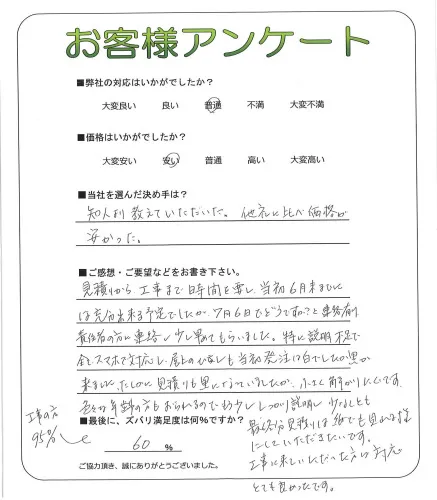 お客様アンケート
■弊社の対応はいかがでしたか?
大変良い 良い 普通 不満 大変不満
■価格はいかがでしたか?
大変安い 安い 普通 高い 大変高い
■当社を選んだ決め手は?
知人より教えていただいた。他社に比べ価格が
安かった。
■ご感想・ご要望などをお書き下さい。
見積りから工事まで時間を要し、当初6月末までに
は充分出来る予定でしたが、7月6日でどうですか?と連絡有り
責任者の方に連絡し少し早めてもらいました。特に説明不足で
全てスマホで対応し、屋上の 当初発注は白でしたが黒が
来ました。たしかに見積りも黒になっていましたが、小さく解かりにくいです。
色々な年齢の方もおられるのでもう少ししっかり説明し、少なくとも
■最後に、ズバリ満足度は何%ですか?
60 %
工事の方
95%
最終見積りは紙でも見れる様
にしていただきたいです。
工事に来ていただいた方の対応
とても良かったです。
ご協力頂き、誠にありがとうございました。